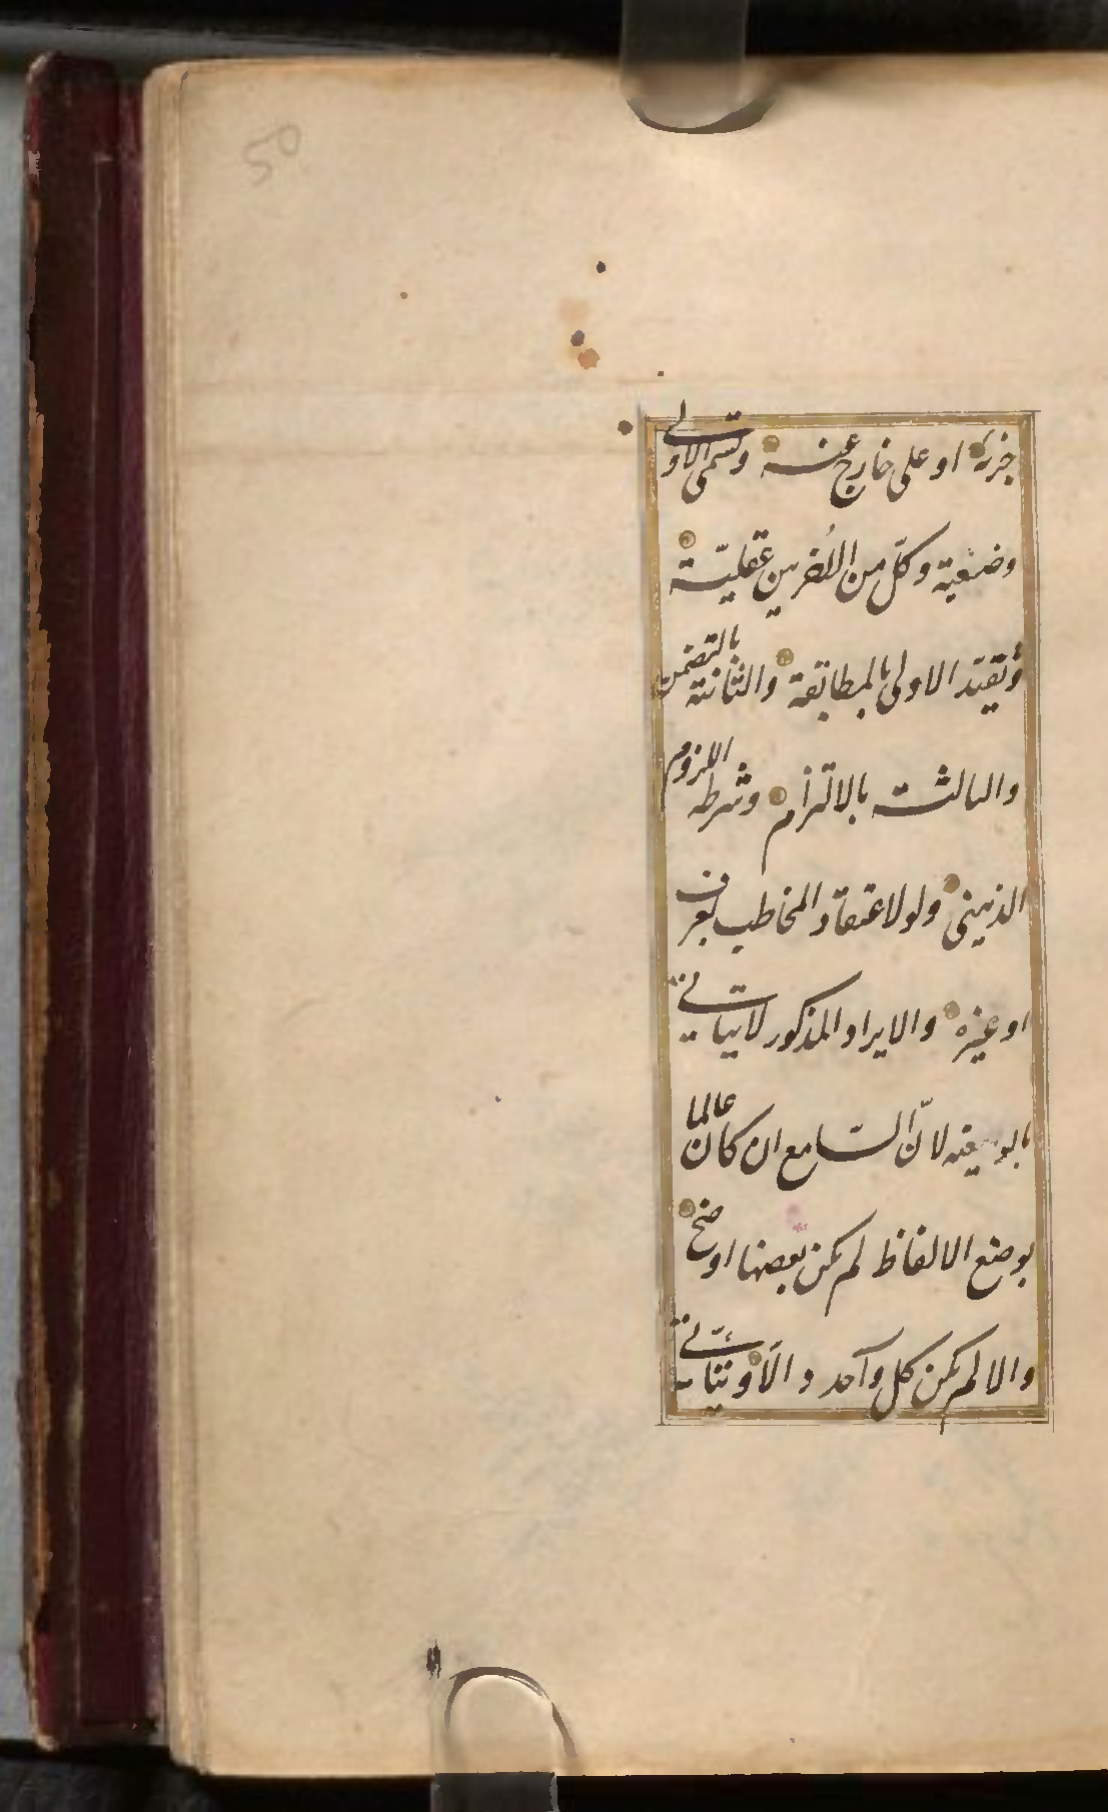 50
جزئه او على خارج عنه وتسمى الاولى
وضعية وكلّ من الاُخريين عقليّة
وتقيّد الاولى بالمطابقة والثانية بالتضمن
والثالثة بالالتزام وشرطه اللزوم
الذهنى ولو لاعتقاد المخاطب بعرف
او غيره والايراد المذكور لا يتأتى
بالوضعية لانّ السامع ان كان عالما
بوضع الالفاظ لم يكن بعضها اوضح
والا لم يكن كل واحد دالّا ويتأتى